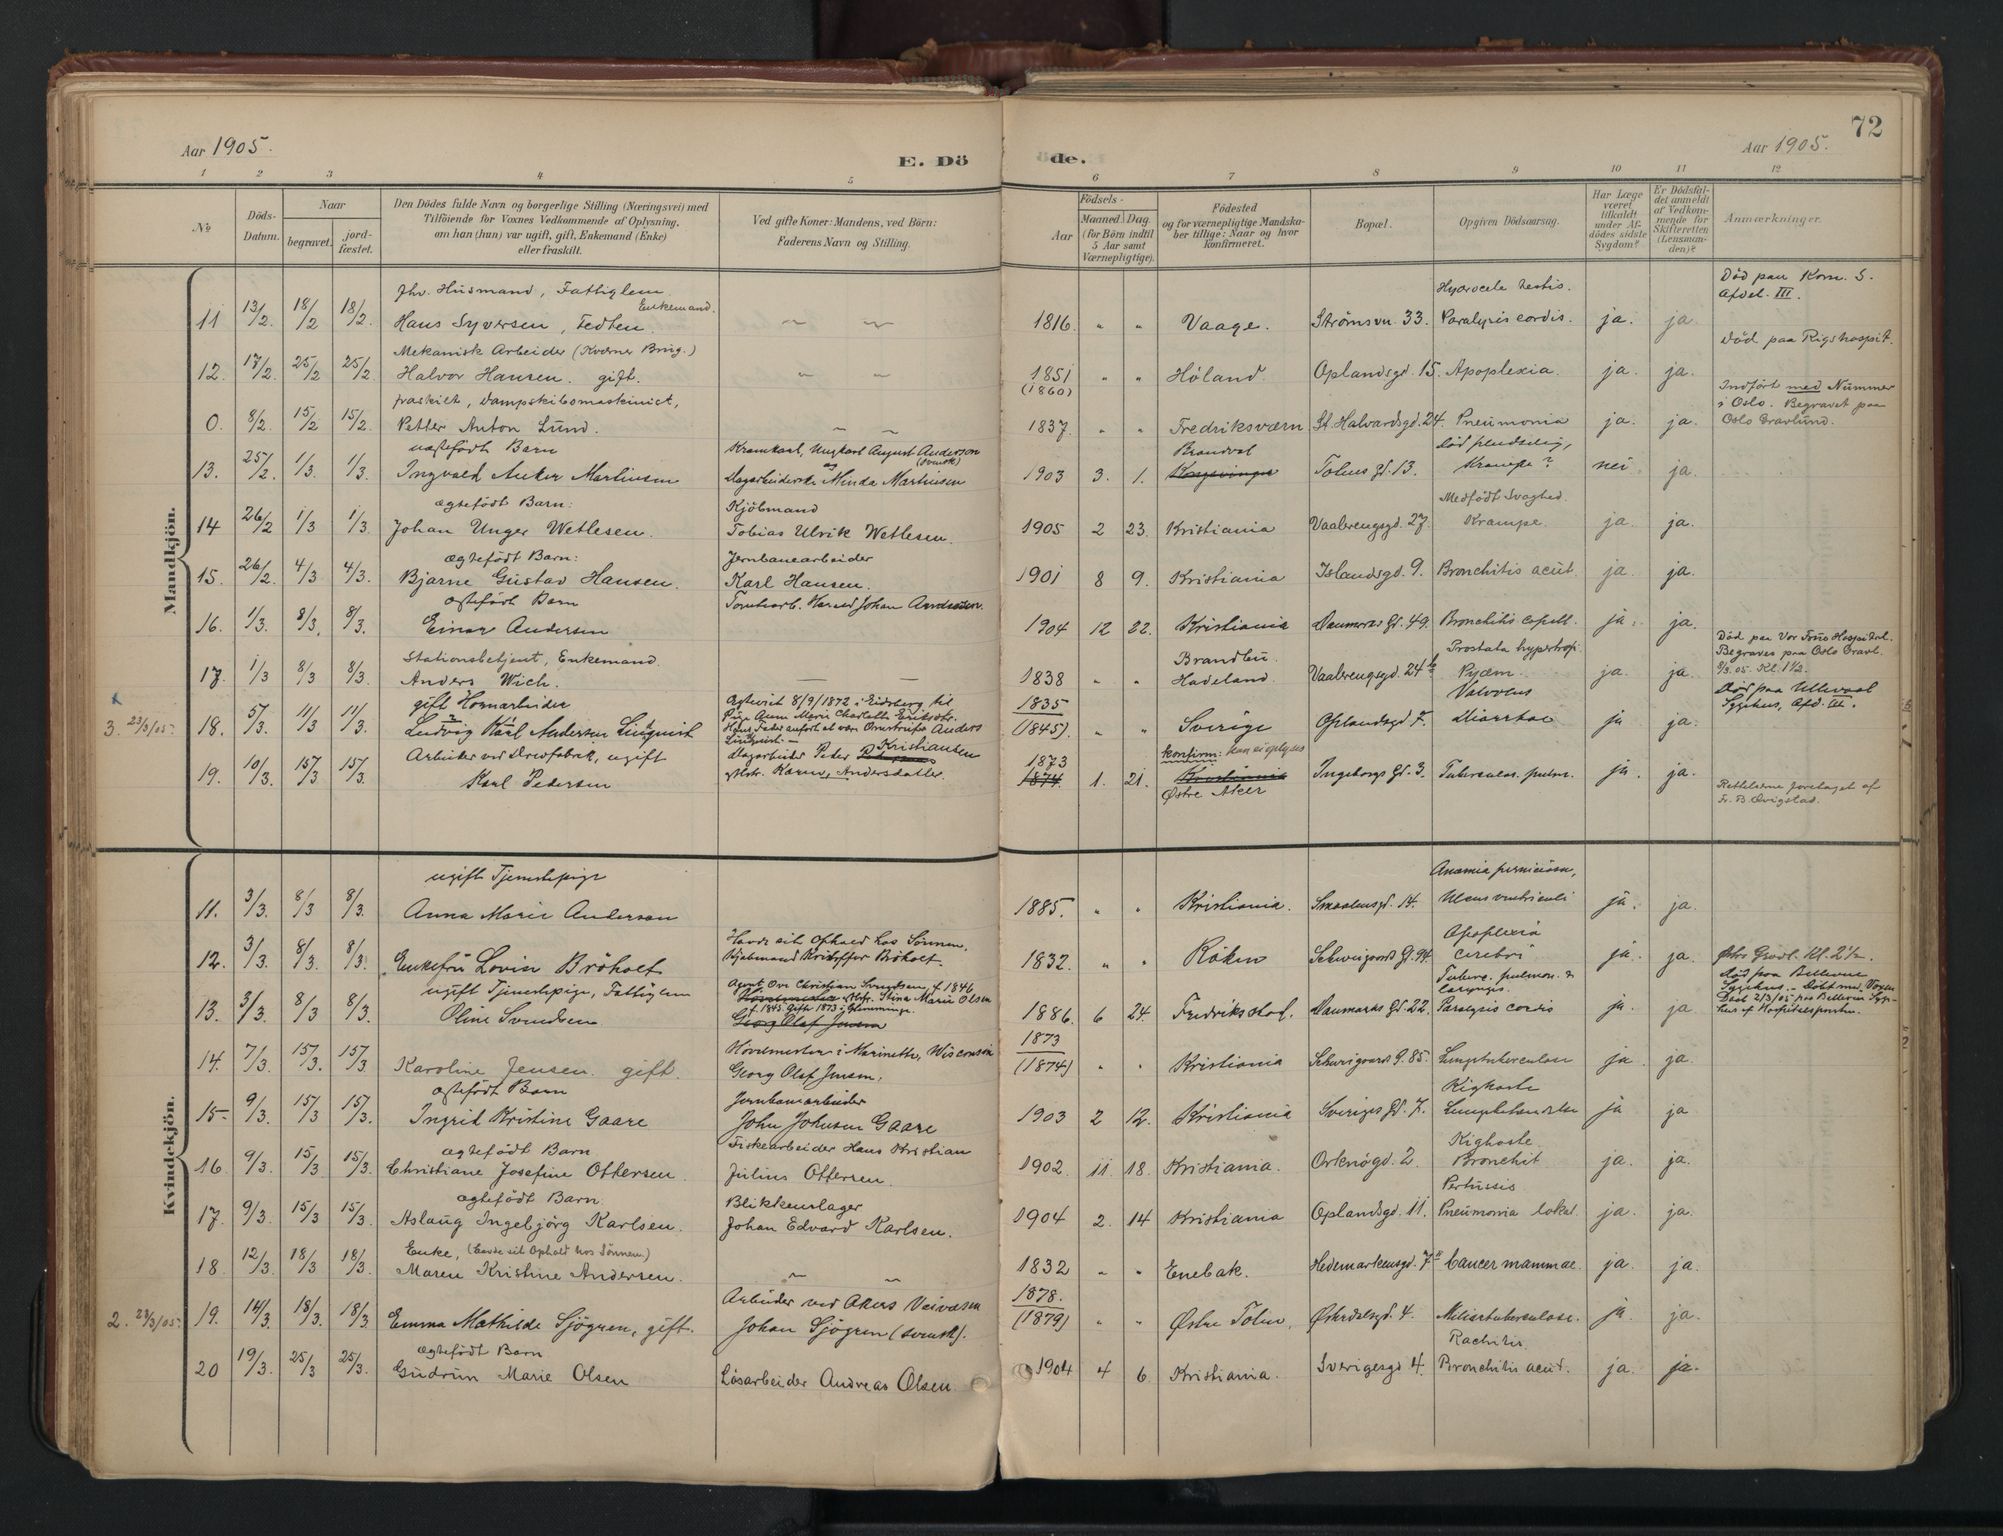 72
Aar 1905.
E. Dö
de.
Aar 1905.
1 2 3 4 5 6 7 8 9 10 11 12
№
Döds-Datum.
Naar
begravet.
jord-fæstet.
Den Dödes fulde Navn og borgerlige Stilling (Næringsvei) med
Tilföiende for Voxnes Vedkommende af Oplysning,
om han (hun) var ugift, gift, Enkemand (Enke)
eller fraskilt.
Ved gifte Koner: Mandens, ved Börn:
Faderens Navn og Stilling.
Födsels-
Aar
Maaned. Dag.
(for Börn indtil
5 Aar samt
Værnepligtige).
Födested
og for værnepligtige Mandska-
ber tillige: Naar og hvor
konfirmeret.
Bopæl.
Opgiven Dödsaarsag.
Har Læge
været
tilkaldt
under Af-
dödes sidste
Sygdom?
Er Dödsfal-
det anmeldt
af Vedkom-
mende for
Skifteretten
(Lensman-
den)?
Anmærkninger.
Mandkjön.
Fhv. Husmand, Fattiglem Enkemand. Hydrocele testis. Død paa Kom. S.
11 13/2 18/2 18/2. Hans Syversen, Fedten. 1816 " " Vaage. Strömsvn 33. Paralysis cordis. ja. ja. Afdel. III.
Mekanisk Arbeider (Kværner Brug.) Død paa Rigshospit.
12. 17/2. 25/2 25/2 Halvor Hansen. gift. 1851 (1860) " " Höland. Oplandsgd. 15. Apoplexia. ja. ja.
fraskilt, Dampskibsmaskinist, Indført med Nummer
0. 8/2. 15/2 15/2. Petter Anton Lund. 1837. " " Fredriksværn St. Halvardsgd. 24. Pneumonia ja. ja. i Oslo. Begravet paa
Oslo Gravlund.
uægtefödt Barn Ungkarl August Anderson (svensk) Brandval død pludselig,
13. 25/2 1/3. 1/3. Ingvald Anker Martinsen og Dagarbeiderske Minda Martinsen 1903 3. 1. Kongsvinger Tøiengd. 13. Krampe? nei ja.
ægtefödt Barn: Kjöbmand Medfödt Svaghed.
14 26/2 1/3 1/3. Johan Unger Wetlesen. Tobias Ulrik Wetlesen. 1905 2 23. Kristiania Vaalerengsgd. 27. Krampe. ja. ja.
ægtefödt Barn: Jernbanearbeider
15. 26/2 4/3 4/3. Bjarne Gustav Hansen. Karl Hansen. 1901 8 9. Kristiania Islandsgd. 9. Bronchitis acut. ja. ja.
ægtefödt Barn Harald Johan Andersen.
16. 1/3. 8/3. 8/3. Einar Andersen 1904 12 22. Kristiania Danmarks Gd. 49. Bronchitis capill. ja. ja.
Stationsbetjent, Enkemand. Brandbu Prostata hypertrop. Død paa Vor Frus Hospital.
17. 1/3 8/3 8/3. Anders Wich. 1838 " " Hadeland. Vaalerengsgd. 24 b Pyæm. ja. ja. Begraves paa Oslo Gravl.
8/3. 05. Kl. 1½.
gift Hornarbeider Ægteviet 8/9/1872 i Eidsberg til 1835 Død paa Ullevaal
3. 23/3/05. 18. 5/3. 11/3 11/3. Ludvig Karl Andersen Lindquist Pige Anne Marie Charlotte (1845). " " Sverige Oplandsgd 7. Diarrhoe ja ja. Sygehus, Afd. III.
Lindquist.
Arbeider ved Drevfabrik, ugift Dagarbeider Peder Kristiansen 1873 konfirm: kan ei oplyses
19. 10/3. 15/3 15/3. Karl Pedersen Karen Andersdatter. 1874 1. 21. Kristiania Ingeborgs Gd. 3. Tuberculos. pulm. ja. ja. Rettelserne foretaget af
Østre Aker Fr. B. Qvigstad.
Kvindekjön.
ugift Tjenestepige Anæmia perniciosa,
11. 3/3. 8/3 8/3. Anna Marie Anderson 1885. " " Kristiania. Smaalensgd. 14. Ulcus ventriculi ja. ja.
Havde sit Ophold hos Sønnen, Apoplexia
12. 3/3. 8/3. 8/3. Enkefru Lovise Bröholt Kjøbmand Kristoffer Bröholt. 1832. " " Röken Schweigaards Gd. 94. cerebri ja. ja. Østre Gravl. Kl. 2½.
ugift Tjenestepige, Fattiglem Agent Ove Christian Svendsen, f. 1846 Tuberc. pulmon. & laryngis. Død paa Bellevue
13. 3/3. 8/3 8/3. Oline Svendsen Hovmester Stina Marie Olsen 1886. 6 24. Fredriksstad. Danmarks Gd. 22. Paralysis cordis ja. ja. Sygehus. –
f. 1845. gift 1873 i Glemminge. Død 2/3/05 paa Bellevue Syge-
Georg Olaf Jensen hus
Hovmester i Marinette, Wisconsin 1873
14. 7/3. 15/3. 15/3 Karoline Jensen. gift. Georg Olaf Jensen. (1874) " " Kristiania Schweigaards G. 85. Lungetuberculose ja. ja.
ægtefödt Barn Jernbanearbeider Kighoste
15– 9/3. 15/3 15/3. Ingrid Kristine Gaare John Johnsen Gaare 1903 2 12. Kristiania Sveriges Gd. 7. Lungebetændelse ja ja
ægtefödt Barn Fiskearbeider Hans Kristian Kighoste.
16 9/3. 15/3. 15/3. Christiane Josefine Ottersen. Julius Ottersen. 1902. 11 18. Kristiania. Orknögd. 2. Bronchit ja. ja.
ægtefödt Barn. Blikkenslager Pertussis
17. 9/3. 15/3 15/3. Aslaug Ingebjörg Karlsen. Johan Edvard Karlsen. 1904 2. 14 Kristiania Oplandsgd. 11. Pneumonia lobar. ja. ja.
Enke, (havde sit Ophold hos Sønnen)
18. 12/3. 18/3 18/3. Maren Kristine Andersen. 1832 " " Enebak. Hedemarkensgd. 7 II Cancer mammae. ja. ja.
Arbeider ved Akers Veivæsen 1878.
2. 23/3/05. 19. 14/3. 18/3. 18/3. Emma Mathilde Sjögren, gift. Johan Sjögren (svensk). (1879) " " Østre Toten, Østerdalsgd. 4. Miliærtuberculose. ja. ja.
ægtefödt Barn Rachitis
20 19/3. 25/3 25/3. Gudrun Marie Olsen Lösarbeider Andreas Olsen. 1904 4 6. Kristiania. Sverigesgd 4. Bronchitis acut. ja. ja.